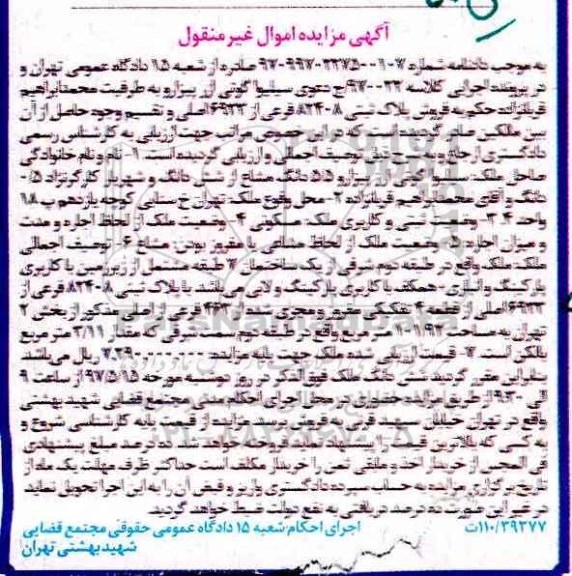 آگهی مزایده اموال غیر منقول
به موجب دادنامه شماره صادره از شعبه ۱۵ دادگاه عمومی تهران و
در پرونده اجرایی کلاسه دعوی سیلیوا گوتی ار پیزارو به طرفیت محمدابراهیم
قربانزاده حکم به فروش پلاک ثبتی ۸۲۴۰۸ فرعی از ۶۹۳۳ اصلی و تقسیم وجوه حاصل از آن
بین مالکین صادر گردیده است که در این خصوص مراتب جهت ارزیابی به کارشناس رسمی
دادگستری ارجاع و به شرح ذیل توصیف اجمالی و ارزیابی گردیده است. ۱- نام و نام خانوادگی
صاحبان ملک: سیلیوا گوتی ار پیزارو ۵/۵ دانگ مشاع از شش دانگ و شهریار کارگرنژاد ۰/۵
دانگ و آقای محمدابراهیم قربانزاده ۲- محل وقوع ملک: تهران خ سنایی کوچه یازدهم پ ۱۸
واحد ۴ ۳- وضعیت ثبتی و کاربری ملک: مسکونی ۴- وضعیت ملک از لحاظ اجاره و مدت
و میزان اجاره: ۵- وضعیت ملک از لحاظ مشاعی یا مفروز بودن: مشاع ۶- توصیف اجمالی
ملک: ملک واقع در طبقه دوم شرقی از یک ساختمان ۷ طبقه مشتمل از زیرزمین با کاربری
پارکینگ و انباری- همکف با کاربری پارکینگ و لابی می‌باشد. با پلاک ثبتی ۸۲۴۰۸ فرعی از
۶۹۳۳ اصلی از قطعه ۴ تفکیکی مفروز و مجزی شده از فرعی از اصلی مذکور از بخش ۲
تهران به مساحت ۱۰۱/۹۲ متر مربع واقع در طبقه دوم سمت شرقی که مقدار ۳/۱۱ متر مربع
بالکن است. ۷- قیمت ارزیابی شده ملک جهت پایه مزایده: ریال می‌باشد
بنابراین مقرر گردید شش دانگ ملک فوق‌الذکر در روز دوسمبه مورخه ۹۷/۵/۱۵ از ساعت ۹
الی ۹/۳۰ از طریق مزایده حضوری در محل اجرای احکام مدنی مجتمع قضایی شهید بهشتی
واقع در تهران خیابان سپهبد قرنی به فروش برسد. مزایده از قیمت پایه کارشناسی شروع و
به کسی که بالاترین قیمت را پیشنهاد نمایند فروخته خواهد شد. ده درصد مبلغ پیشنهادی
فی المجلس از خریدار اخذ و مابقی ثمن را خریدار مکلف است حداکثر ظرف مهلت یک ماه از
تاریخ برگزاری مزایده به حساب سپرده دادگستری واریز و فیش آن را به این اجرا تحویل نماید
در غیر این صورت ده درصد دریافتی به نفع دولت ضبط خواهد گردید.
۱۱۰/۳۹۳۷۷ت اجرای احکام شعبه ۱۵ دادگاه عمومی حقوقی مجتمع قضایی
شهید بهشتی تهران